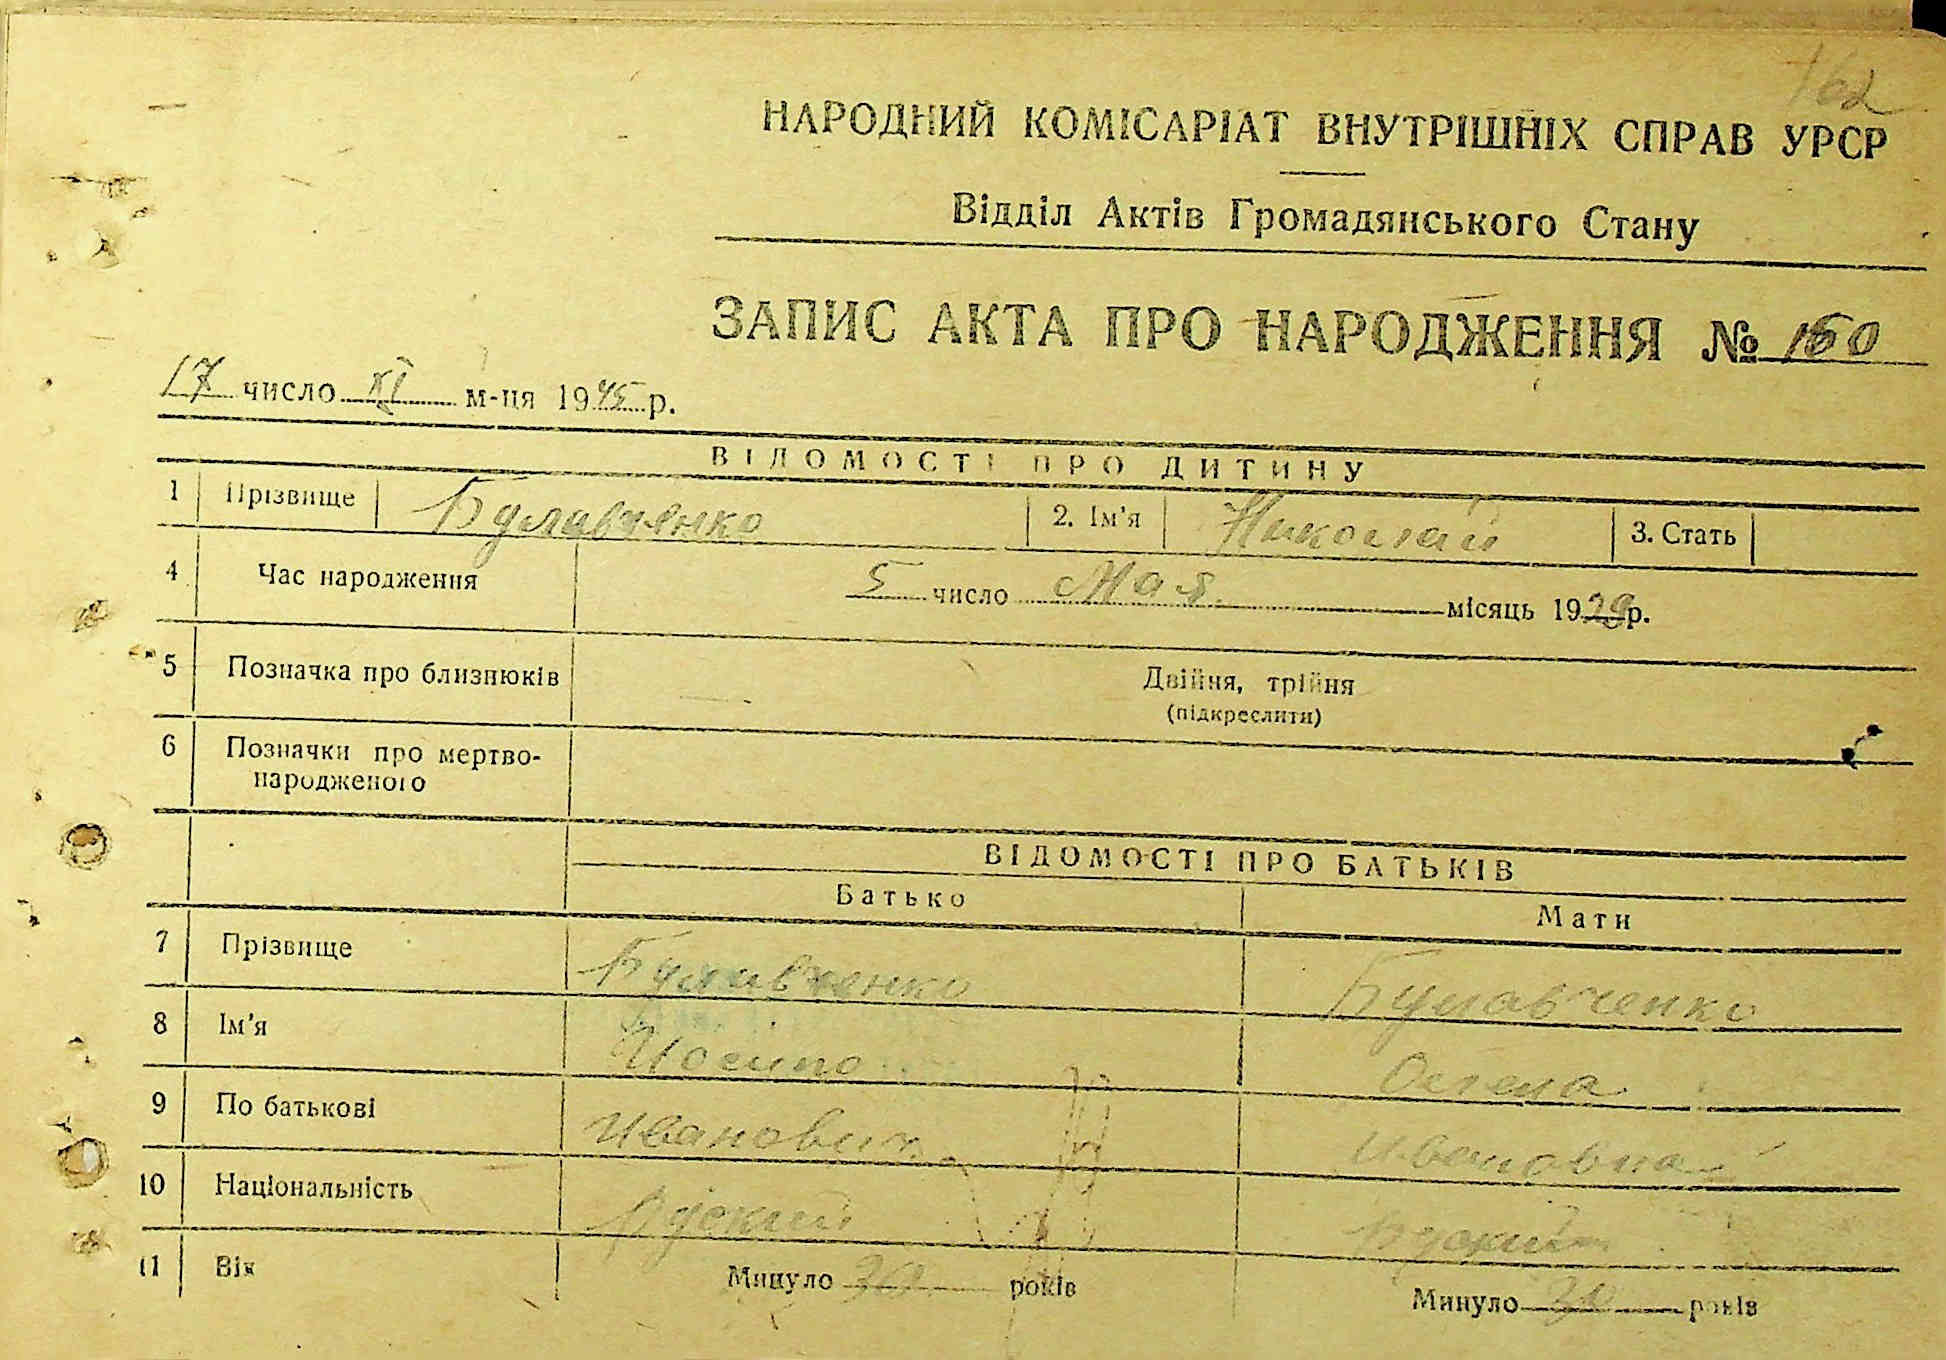 162
НАРОДНИЙ КОМІСАРІАТ ВНУТРІШНІХ СПРАВ УРСР
Відділ Актів Громадянського Стану
ЗАПИС АКТА ПРО НАРОДЖЕННЯ № 160
17 число XI м-ця 1945 р.
ВІДОМОСТІ ПРО ДИТИНУ
1 Прізвище Булавченко 2. Ім'я Николай 3. Стать
4 Час народження 5 число Мая місяць 1929 р.
5 Позначка про близнюків Двійня, трійня
(підкреслити)
6 Позначки про мертво-
народженого
ВІДОМОСТІ ПРО БАТЬКІВ
Батько Мати
7 Прізвище Булавченко Булавченко
8 Ім'я
9 По батькові Иванович Ивановна
10 Національність Руский Руский
11 Вік Минуло років Минуло років